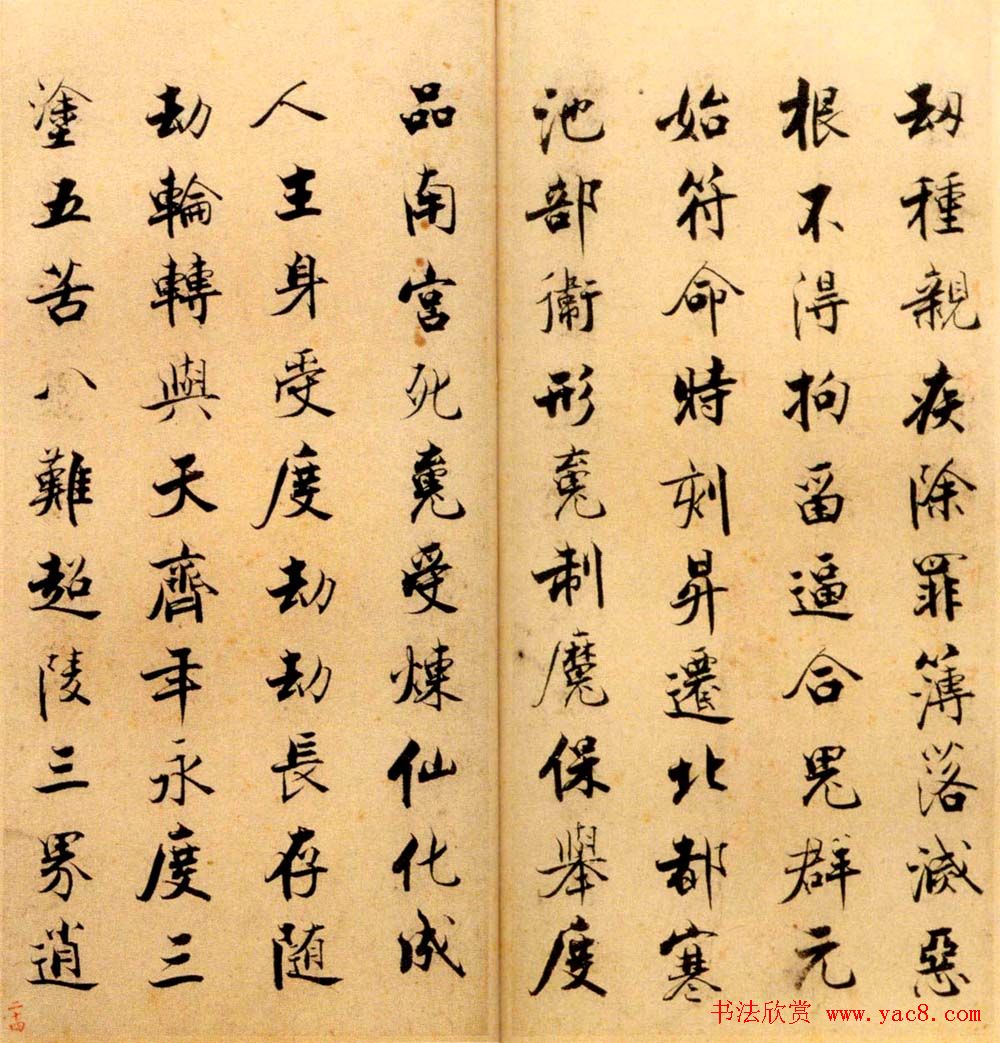 劫種親疾除罪簿落滅惡
根不得拘留逼合鬼群元
始符命時刻昇遷北都寒
池部衛形魂制魔保舉度
品南宮死魂受煉仙化成
人生身受度劫劫長存随
劫輪轉與天齊年永度三
塗五苦八難超陵三界逍
二十四
书法欣赏 www.yac8.com